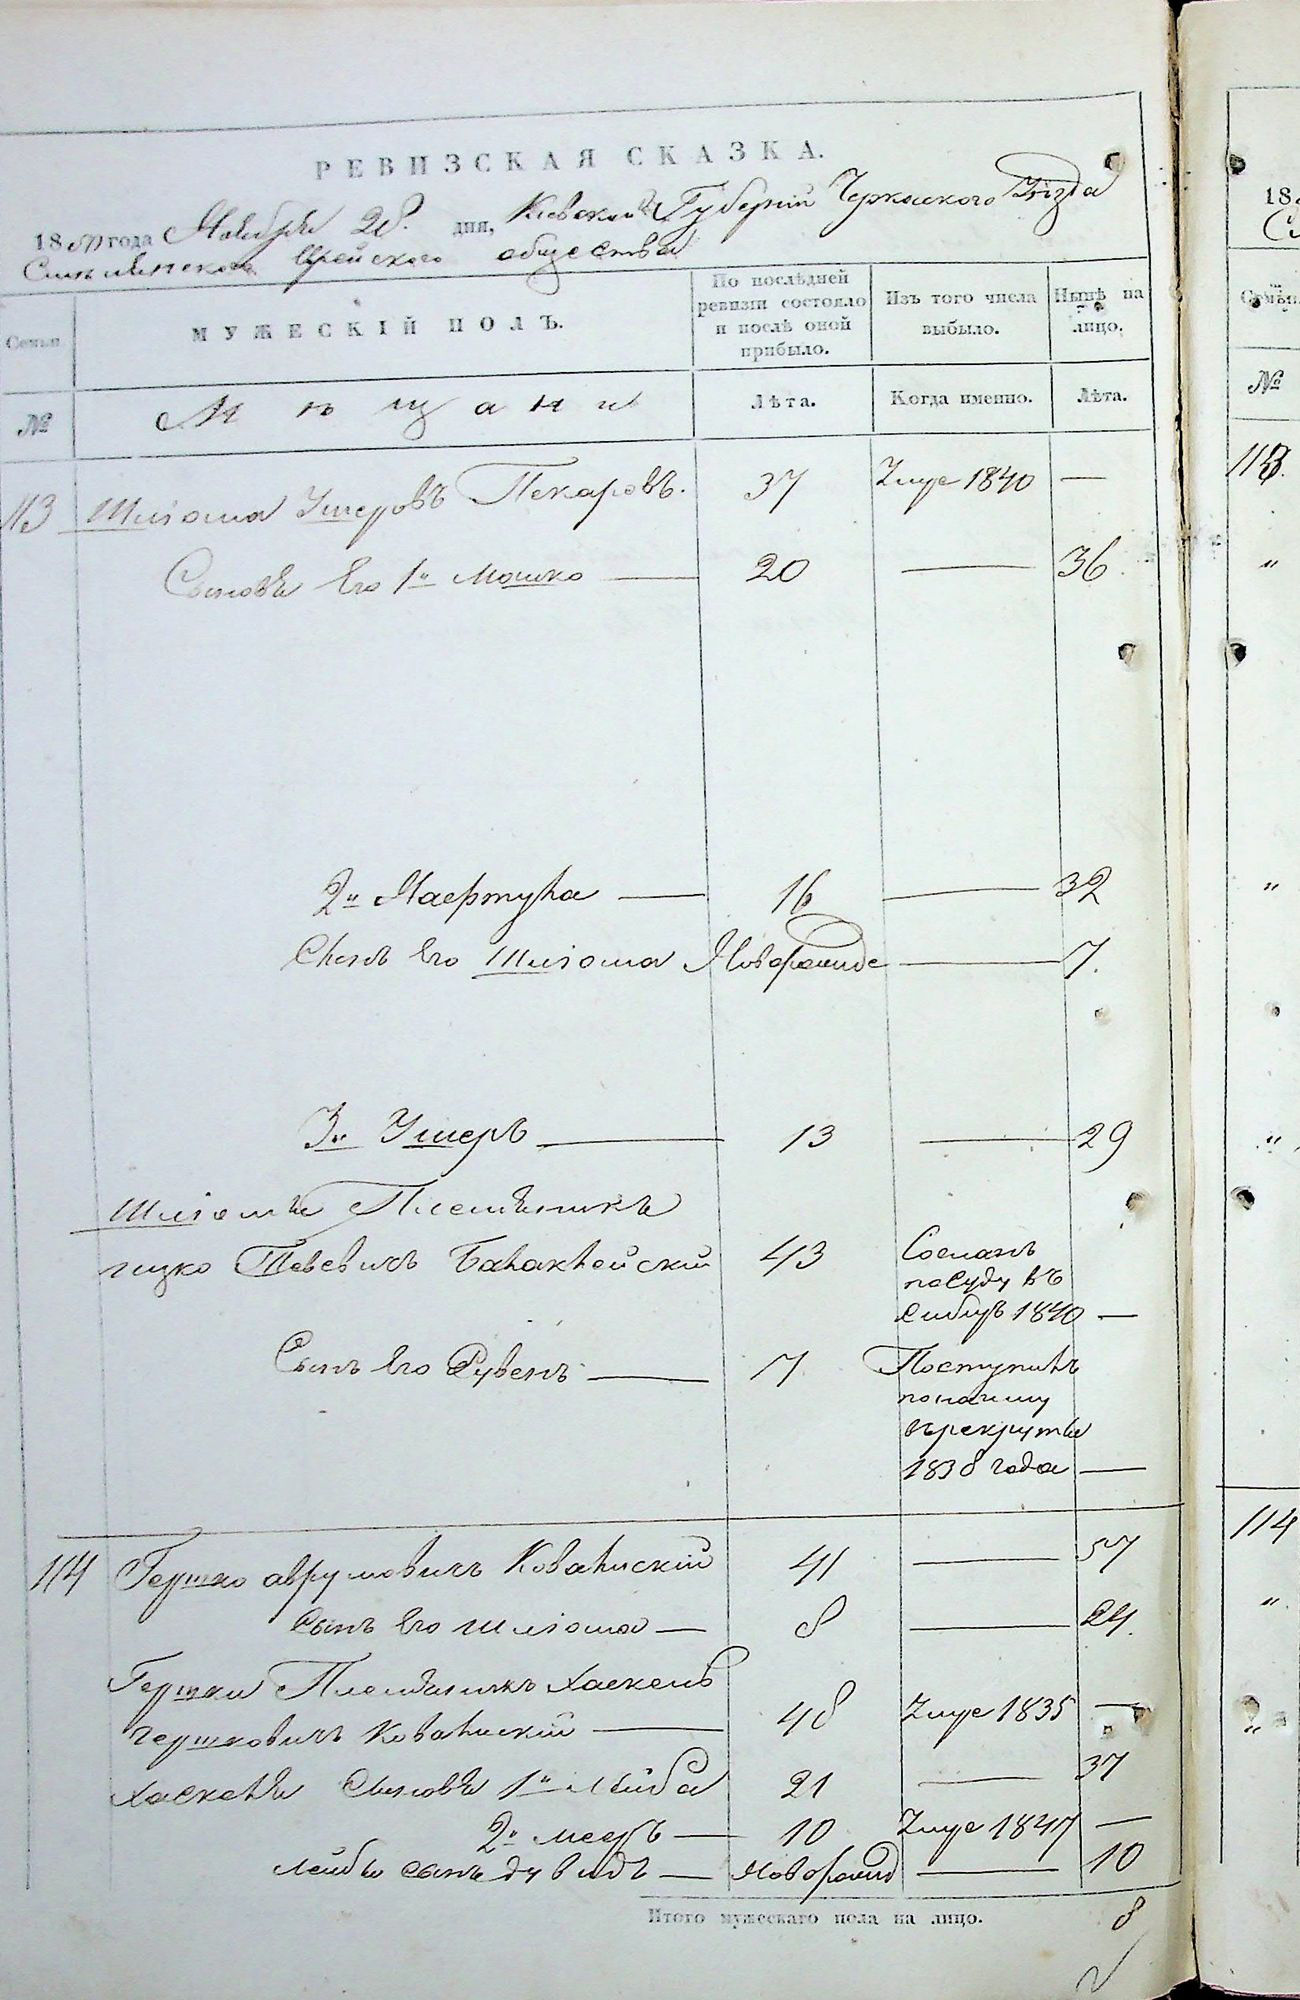 РЕВИЗСКАЯ СКАЗКА.
1850 года Ноября 28. дня, Киевской Губерніи Черкаского Уѣзда
Еврейского общества
Семьи
МУЖЕСКІЙ ПОЛЪ.
По послѣдней ревизіи состояло и послѣ оной прибыло.
Изъ того числа выбыло.
Нынѣ на лицо.
№
Мѣщани
Лѣта.
Когда именно.
Лѣта.
113 Шліома Ушеровъ Пекаровъ. 37 Умре 1840 —
Сыновья Его 1й Мошко — 20 — 36
2й — 16 — 32
Сынъ Его Шліома Новорожде — 7.
3й Ушеръ — 13 — 29
Шліомы Племяникъ
Ицко 43 Сосланъ
посуду въ
Сибиръ 1840 —
Сынъ Его Рувенъ — 7 Поступилъ
рекруты
1838 года —
114 Гершко Аврумовичъ Ковалиский 41 — 57
Сынъ Его Шліома — 8 — 24.
Гершки Племяникъ Хаскель
Гершковичъ Ковалиский — 48 Умре 1835 —
Хаскеля Сыновья 1й Лейба 21 — 37
2й Мееръ — 10 Умре 1847 —
Лейбы сынъ Дувидъ — Новорожд — 10
Итого мужескаго пола на лицо. 8
18
№
113.
"
"
"
114
"
"